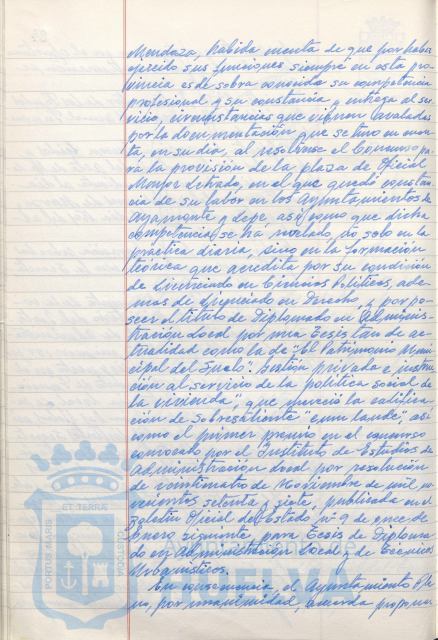 Mendoza, habida cuenta de que por haber
ejercido sus funciones siempre en esta pro-
vincia es de sobra conocida su competencia
profesional y su constancia y entrega al ser-
vicio, circunstancias que vienen avaladas
por la documentación que se tuvo en cuen-
ta, en su dia, al resolverse el Concurso pa-
ra la provisión de la plaza de Oficial
Mayor Letrado, en el que quedó constan-
cia de su labor en los Ayuntamientos de
Ayamonte y Lepe así como que dicha
competencia se ha notado no solo en la
práctica diaria, sino en la formación
teórica que acredita por su condición
de Licenciado en Ciencias Políticas, ade-
mas de Licenciado en Derecho, y por po-
seer el título de Diplomado en Adminis-
tración Local por una Tesis tan de ac-
tualidad como la de "El Patrimonio Muni-
cipal del Suelo". Gestión privada e
ción al servicio de la política social de
la vivienda", que mereció la califica-
ción de Sobresaliente "cum laude", así
como el primer premio en el concurso
convocado por el Instituto de Estudios de
Administración Local por resolución
de veintinueve de Noviembre de mil no-
vecientos setenta y siete, publicada en el
Boletín Oficial del Estado nº 9 de once de
Enero siguiente para Tesis de Diploma-
do en Administración Local y de Técnicos
Urbanísticos.
En consecuencia, el Ayuntamiento Ple-
no, por unanimidad, acuerda proponer
ET TERRÆ
PORTUS MARIS
CUSTODIA
HUELVA